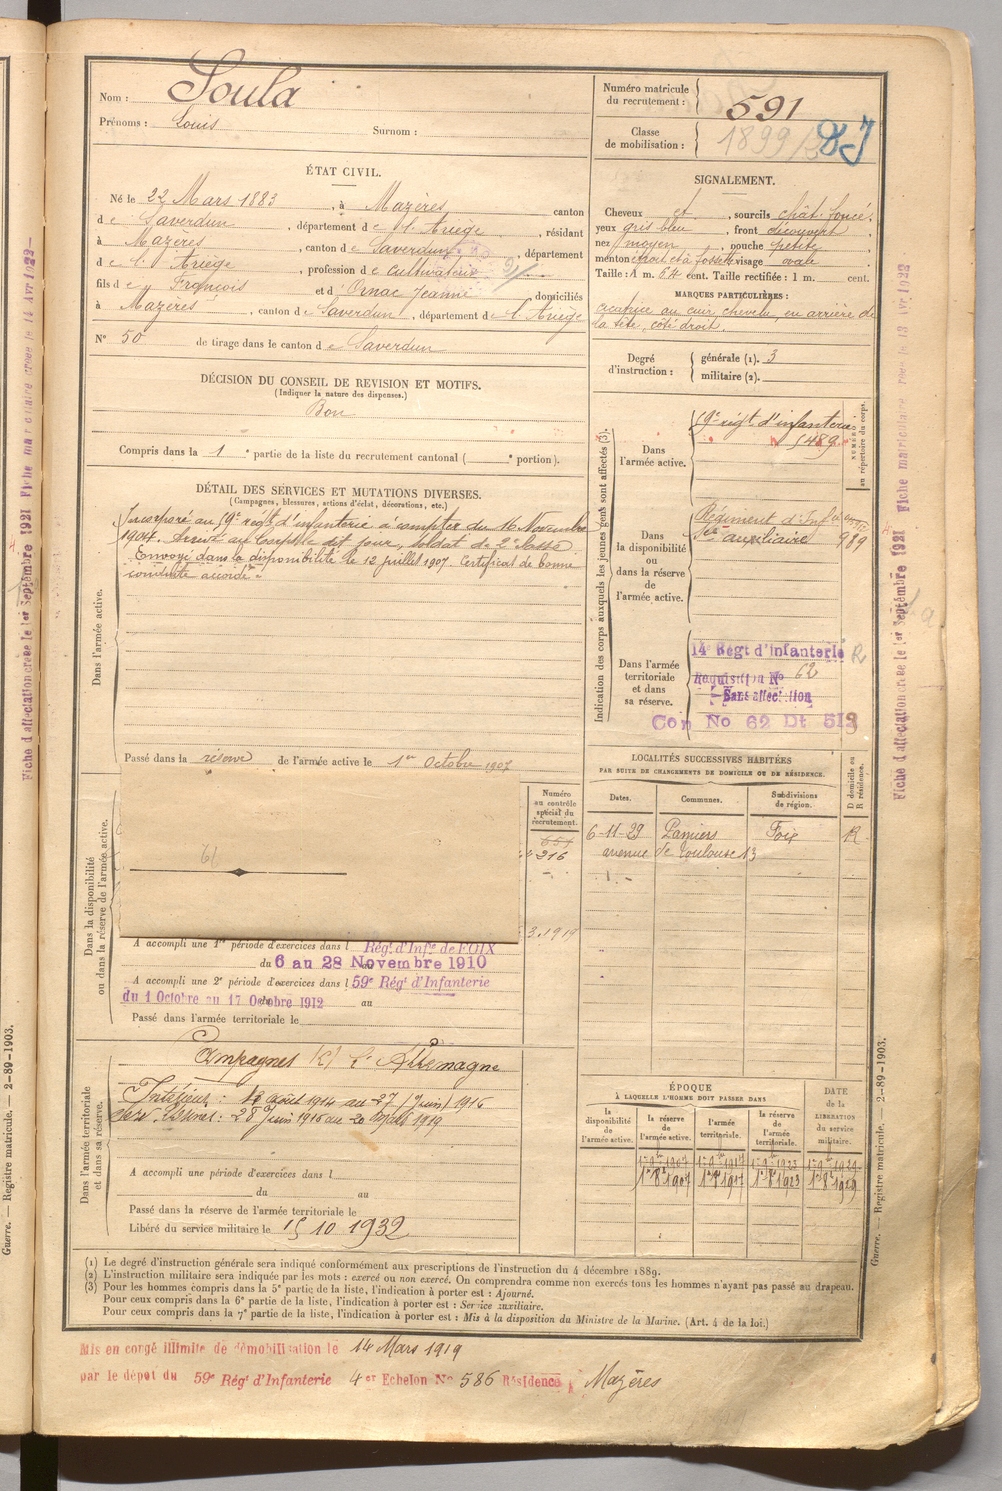 Nom : Soula
Prénoms : Louis Surnom :
Numéro matricule du recrutement : 591
Classe de mobilisation : 1899
ÉTAT CIVIL.
Né le 22 Mars 1883, à Mazères, canton
de Saverdun, département de l'Ariège, résidant
à Mazères, canton de Saverdun, département
de l'Ariège, profession de cultivateur
fils de François et d' Ornac Jeanne domiciliés
à Mazères, canton de Saverdun, département de l'Ariège
N° 50 de tirage dans le canton de Saverdun
SIGNALEMENT.
Cheveux et, sourcils chât. foncé.
yeux gris bleu, front découvert
nez moyen, bouche petite
menton rond et à fossette visage ovale
Taille : 1 m. 64 cent. Taille rectifiée : 1 m. cent.
MARQUES PARTICULIÈRES :
cicatrice au cuir chevelu, en arrière de
la tête, côté droit.
Degré d'instruction : générale (1). 3
militaire (2).
DÉCISION DU CONSEIL DE REVISION ET MOTIFS.
(Indiquer la nature des dispenses.)
Bon
Compris dans la 1e partie de la liste du recrutement cantonal ( e portion).
DÉTAIL DES SERVICES ET MUTATIONS DIVERSES.
(Campagnes, blessures, actions d'éclat, décorations, etc.)
Dans l'armée active.
Incorporé au 59e régt d'infanterie à compter du 16 Novembre
1904. Arrivé au Corps le dit jour, soldat de 2e classe.
Envoyé dans la disponibilité le 12 juillet 1907. Certificat de bonne
conduite accordé.
Passé dans la réserve de l'armée active le 1er Octobre 1907
Indication des corps auxquels les jeunes gens sont affectés (3).
NUMÉRO au répertoire du corps.
Dans l'armée active.
59e régt d'infanterie
Dans la disponibilité ou dans la réserve de l'armée active.
Régiment d'Infie
auxiliaire 989
Dans l'armée territoriale et dans sa réserve.
14e Régt d'Infanterie R
Réquisition No 62
Sans affectation
Con No 62 Dt 513
LOCALITÉS SUCCESSIVES HABITÉES
PAR SUITE DE CHANGEMENTS DE DOMICILE OU DE RÉSIDENCE.
Dates. Communes. Subdivisions de région. D domicile ou R résidence.
6-11-29 Pamiers Foix R
avenue de Toulouse 13
Dans la disponibilité ou dans la réserve de l'armée active.
Numéro au contrôle spécial du recrutement.
316
61
3.1919
A accompli une 1re période d'exercices dans l Régt d'Infie de FOIX
du 6 au 28 Novembre 1910
A accompli une 2e période d'exercices dans l 59e Régt d'Infanterie
du 1 Octobre au 17 Octobre 1912 au
Passé dans l'armée territoriale le
Dans l'armée territoriale et dans sa réserve.
Campagnes c/ l'Allemagne
Intérieur : août 1914 au 27 Juin 1916
aux Armées : 28 Juin 1916 au 1919
A accompli une période d'exercices dans l
du au
Passé dans la réserve de l'armée territoriale le
Libéré du service militaire le 15 10 1932
ÉPOQUE
À LAQUELLE L'HOMME DOIT PASSER DANS
la disponibilité de l'armée active. la réserve de l'armée active. l'armée territoriale. la réserve de l'armée territoriale.
DATE de la LIBÉRATION du service militaire.
1er 8bre 1907 1er 8bre 1917 1er 8bre 1923 1er 8bre 1929
(1) Le degré d'instruction générale sera indiqué conformément aux prescriptions de l'instruction du 4 décembre 1889.
(2) L'instruction militaire sera indiquée par les mots : exercé ou non exercé. On comprendra comme non exercés tous les hommes n'ayant pas passé au drapeau.
(3) Pour les hommes compris dans la 5e partie de la liste, l'indication à porter est : Ajourné.
Pour ceux compris dans la 6e partie de la liste, l'indication à porter est : Service auxiliaire.
Pour ceux compris dans la 7e partie de la liste, l'indication à porter est : Mis à la disposition du Ministre de la Marine. (Art. 4 de la loi.)
Mis en congé illimité de démobilisation le 14 Mars 1919
par le dépôt du 59e Régt d'Infanterie 4er Echelon No 586 Résidence à Mazères
Fiche d'affectation créée le 1er Septembre 1921 Fiche matriculaire créée le 14 Avr 1922
Fiche d'affectation créée le 1er Septembre 1921 Fiche matriculaire créée le 13 Avr 1922
Guerre. — Registre matricule. — 2-89-1903.
Guerre. — Registre matricule. 2-89-1903.